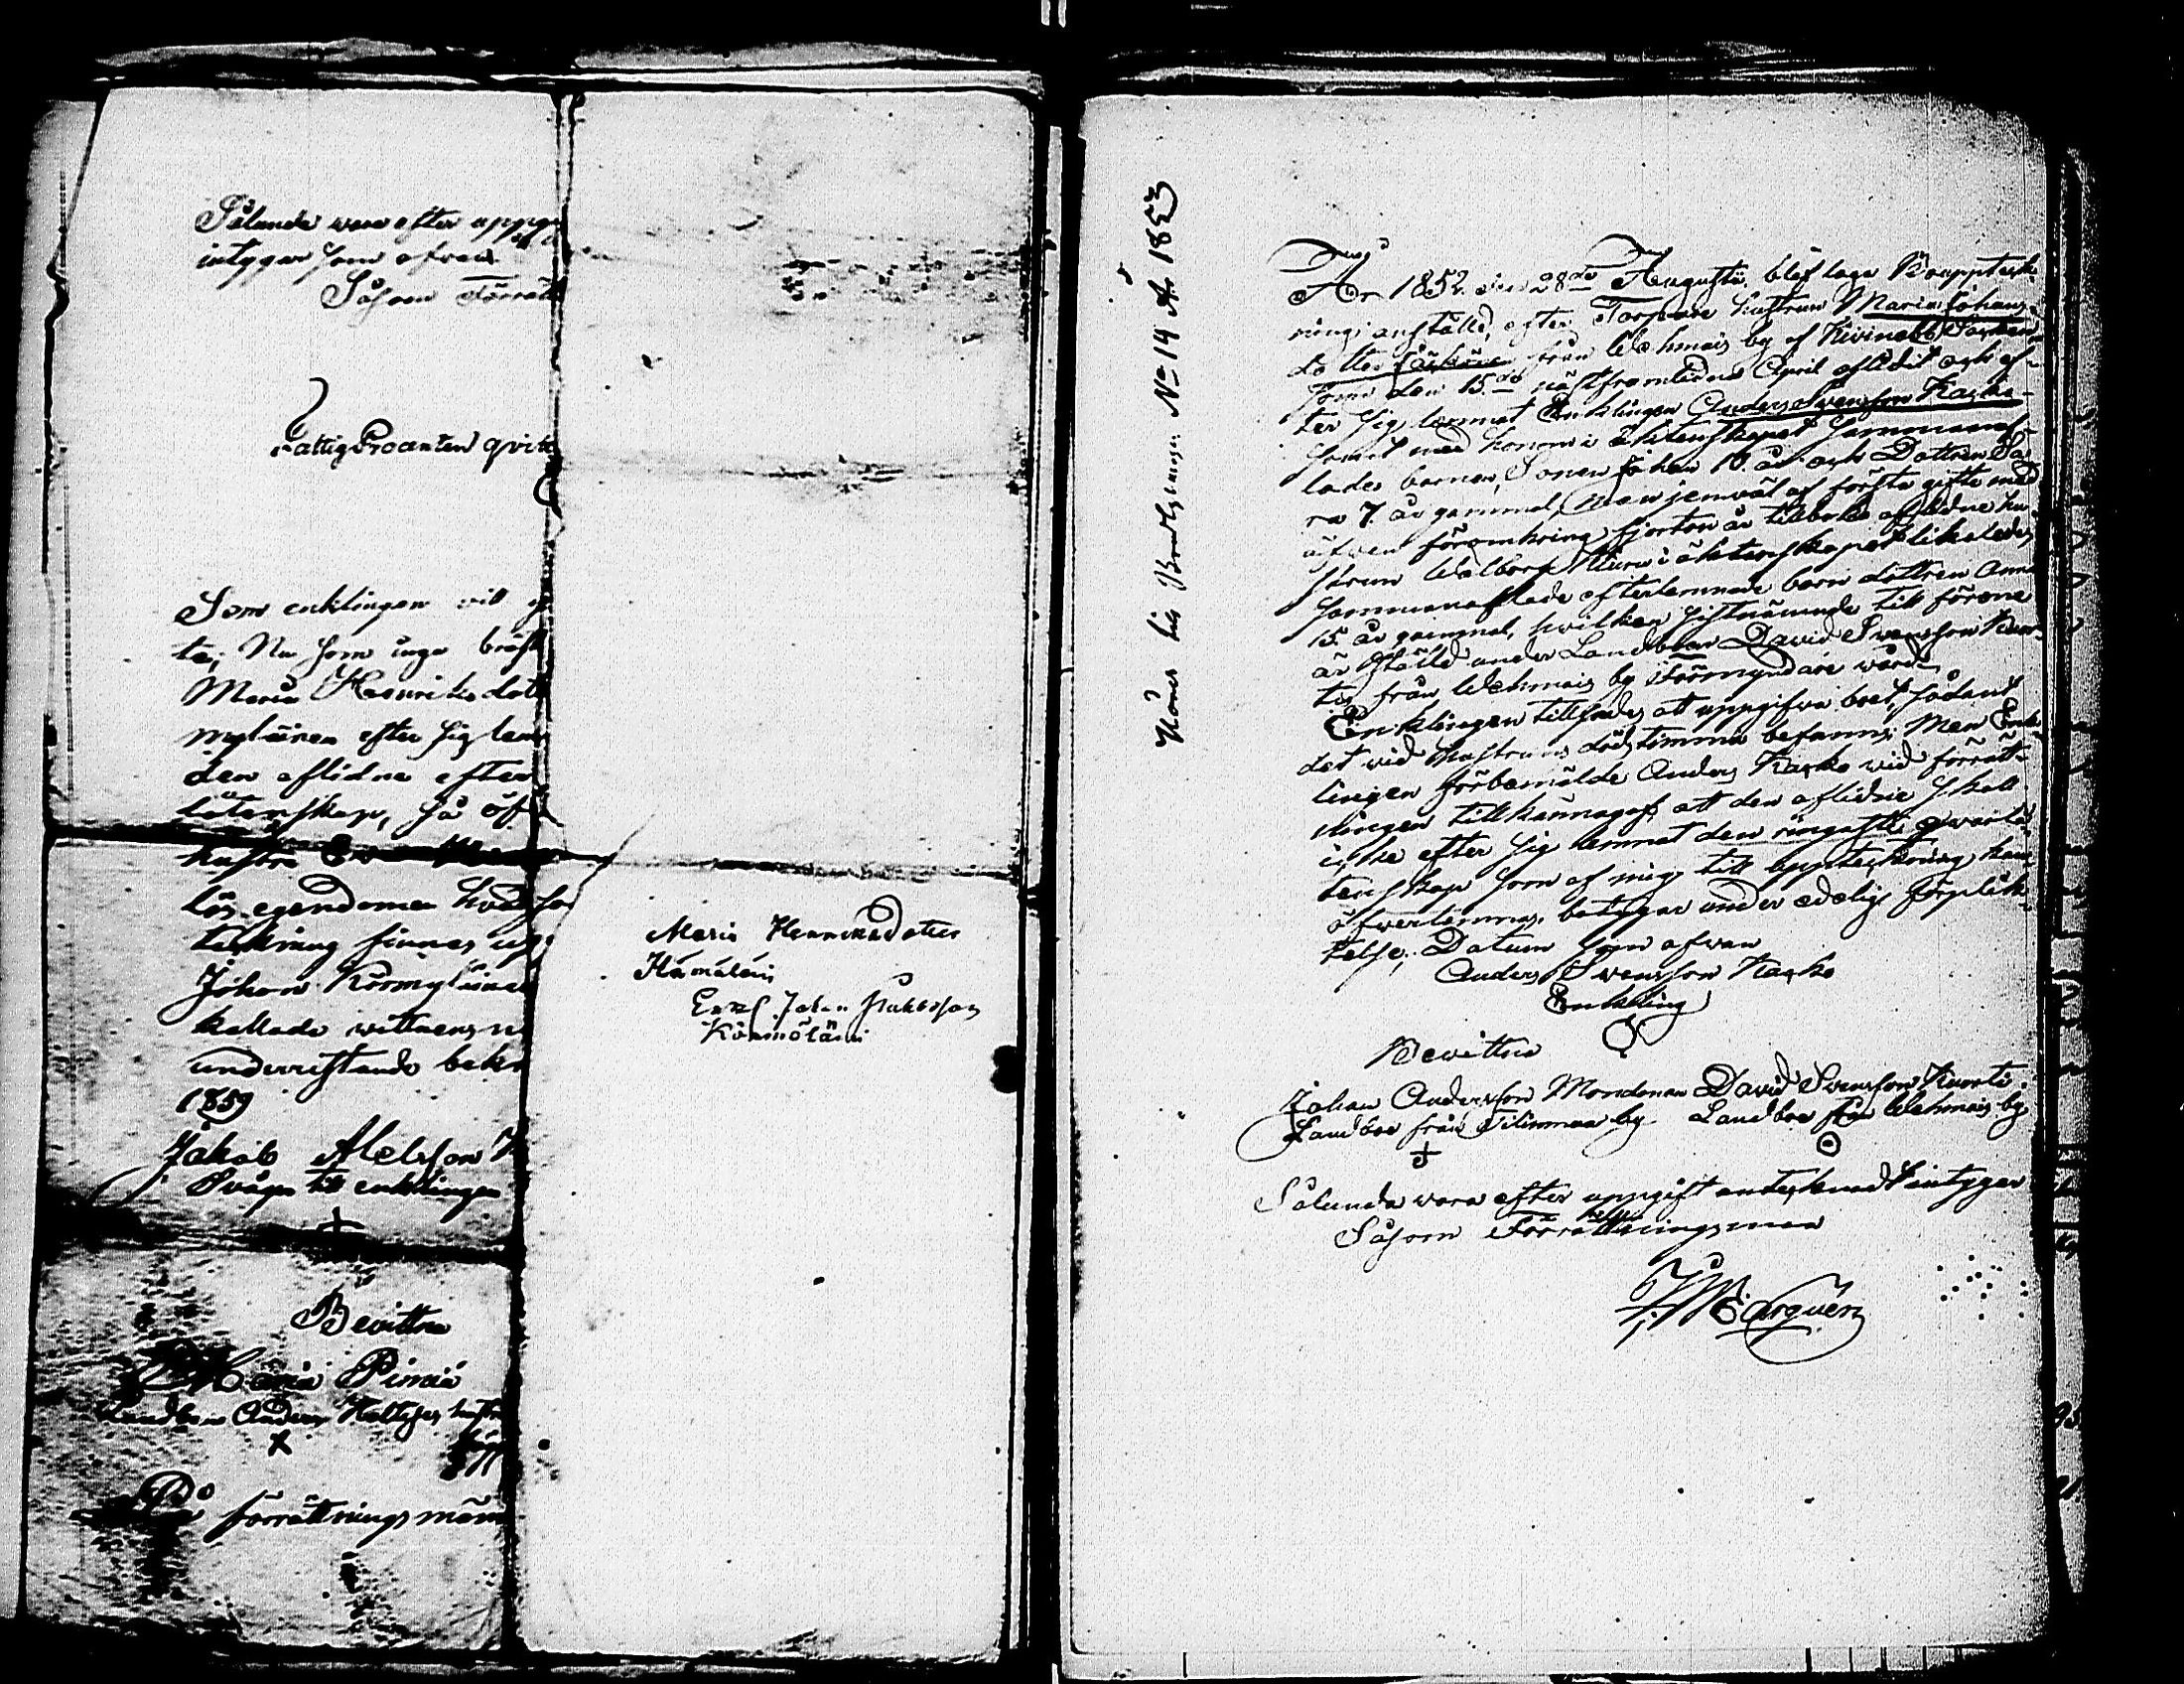 Sålunda vara efter uppgi
intygar som ofvan
Såsom Förrätt
FattigProcenten qvitt
Som enklingen vill
te; Nu som inga bröst
Maria Henriksdott
myläinen efter sig lem
den aflidne efter
låtenskap, så öf
hustru
lös egendomen hvad so
teckning finnes upp
Johan Körmyläinen
kallade wittnens n
underristande bekr
1859
Jakob Abelsson
Svåger till enklingen
+
Bevittna
Maria Pimiä
Landboen Anders hustru
x
På förrättnings männ
Maria Henriksdotter
Hämäläin
Johan Jakobsson
Kömmöläin
N:o 14 A:o 1853
År 1852 den 28de Augustii blef laga Bouppteck-
ning anställd, efter Torpare hustrun Maria Johans-
dotter från Wehmais by af Kivinebb Socken
som den 15de nästframledne April aflidit och ef-
ter sig lemnat Enklingen Anders Svensson Kacko
samt med honom i äktenskapet sammanaf-
lade barnen, Sonen Johan 10 år och Dottren Sa-
ra 7 år gammal, Men jemväl af förste gifte med
äfven för omkring fjorton år tillbaka aflidne hu-
strun Walborg i äktenskapet likaledes
sammanaflade efterlemnade barn dottren Anna
15 år gammal, hvilken sistnämnde till förone
är ställd under Landboen David Svensson Kuor-
ti från Wehmais by Förmyndare wård.
Enklingen tillsades att uppgifva boet, sådant
det vid hustruns dödstimma befanns; Men Enk-
lingen förbemälde Anders Kacko vid förrätt-
ningen tillkännagaf att den aflidne skall
icke efter sig lemnat den ringaste qvarlå-
tenskap som af mig till uppteckning kan
öfverlemnas, betygar under edelig förplik-
telse; Datum som ofvan
Anders Svensson Kacko
Enkling
Bevittna
Johan Andersson Mondonen David Svensson Kuorti
Landboe från Tilimmaa by Landboe från Wehmais by
+
Sålunda vara efter uppgift antecknadt intygar
Såsom Förrättningsman